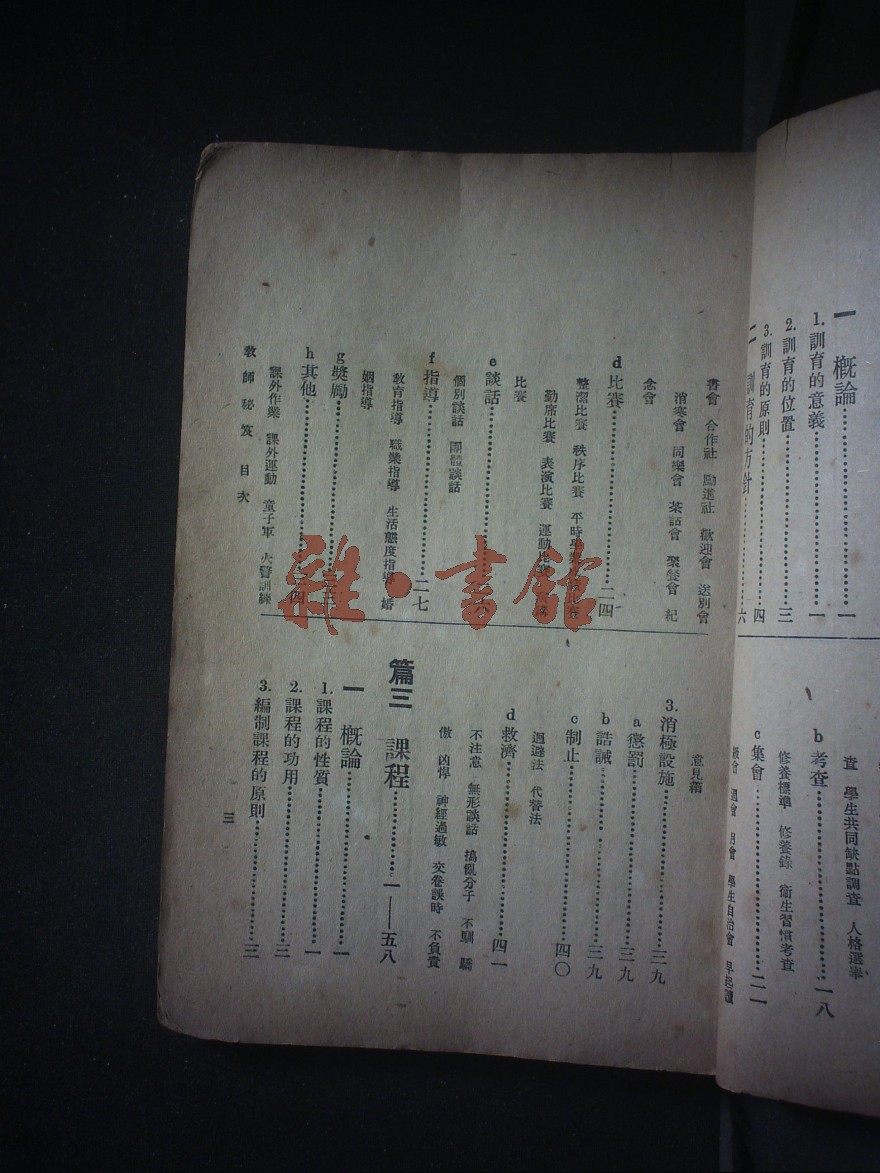 一 概論……一
1. 訓育的意義……一
2. 訓育的位置……三
3. 訓育的原則……四
二 訓育的方針……六
查 學生共同缺點調查 人格選舉
b 考查……一八
修養標準 修養錄 衞生習慣考查
c 集會……二一
週會 月會 學生自治會 早起
書會 合作社 勵進社 歡迎會 送別會
消寒會 同樂會 茶話會 聚餐會 紀
念會
d 比賽……二四
整潔比賽 秩序比賽 平時
勤席比賽 表演比賽 運動比
比賽
e 談話……
個別談話 團體談話
f 指導……二七
教育指導 職業指導 生活態度指導 婚
姻指導
g 獎勵……三三
h 其他……四
課外作業 課外運動 童子軍 火警訓練
教師秘笈 目次
意見箱
3. 消極設施……三九
a 懲罰……三九
b 誥誡……三九
c 制止……四〇
迴避法 代替法
d 救濟……四一
不注意 無形談話 搗亂分子 不馴 驕
傲 凶悍 神經過敏 交卷誤時 不負責
篇三 課程……一——五八
一 概論……一
1. 課程的性質……一
2. 課程的功用……三
3. 編制課程的原則……三
三
雜·書館